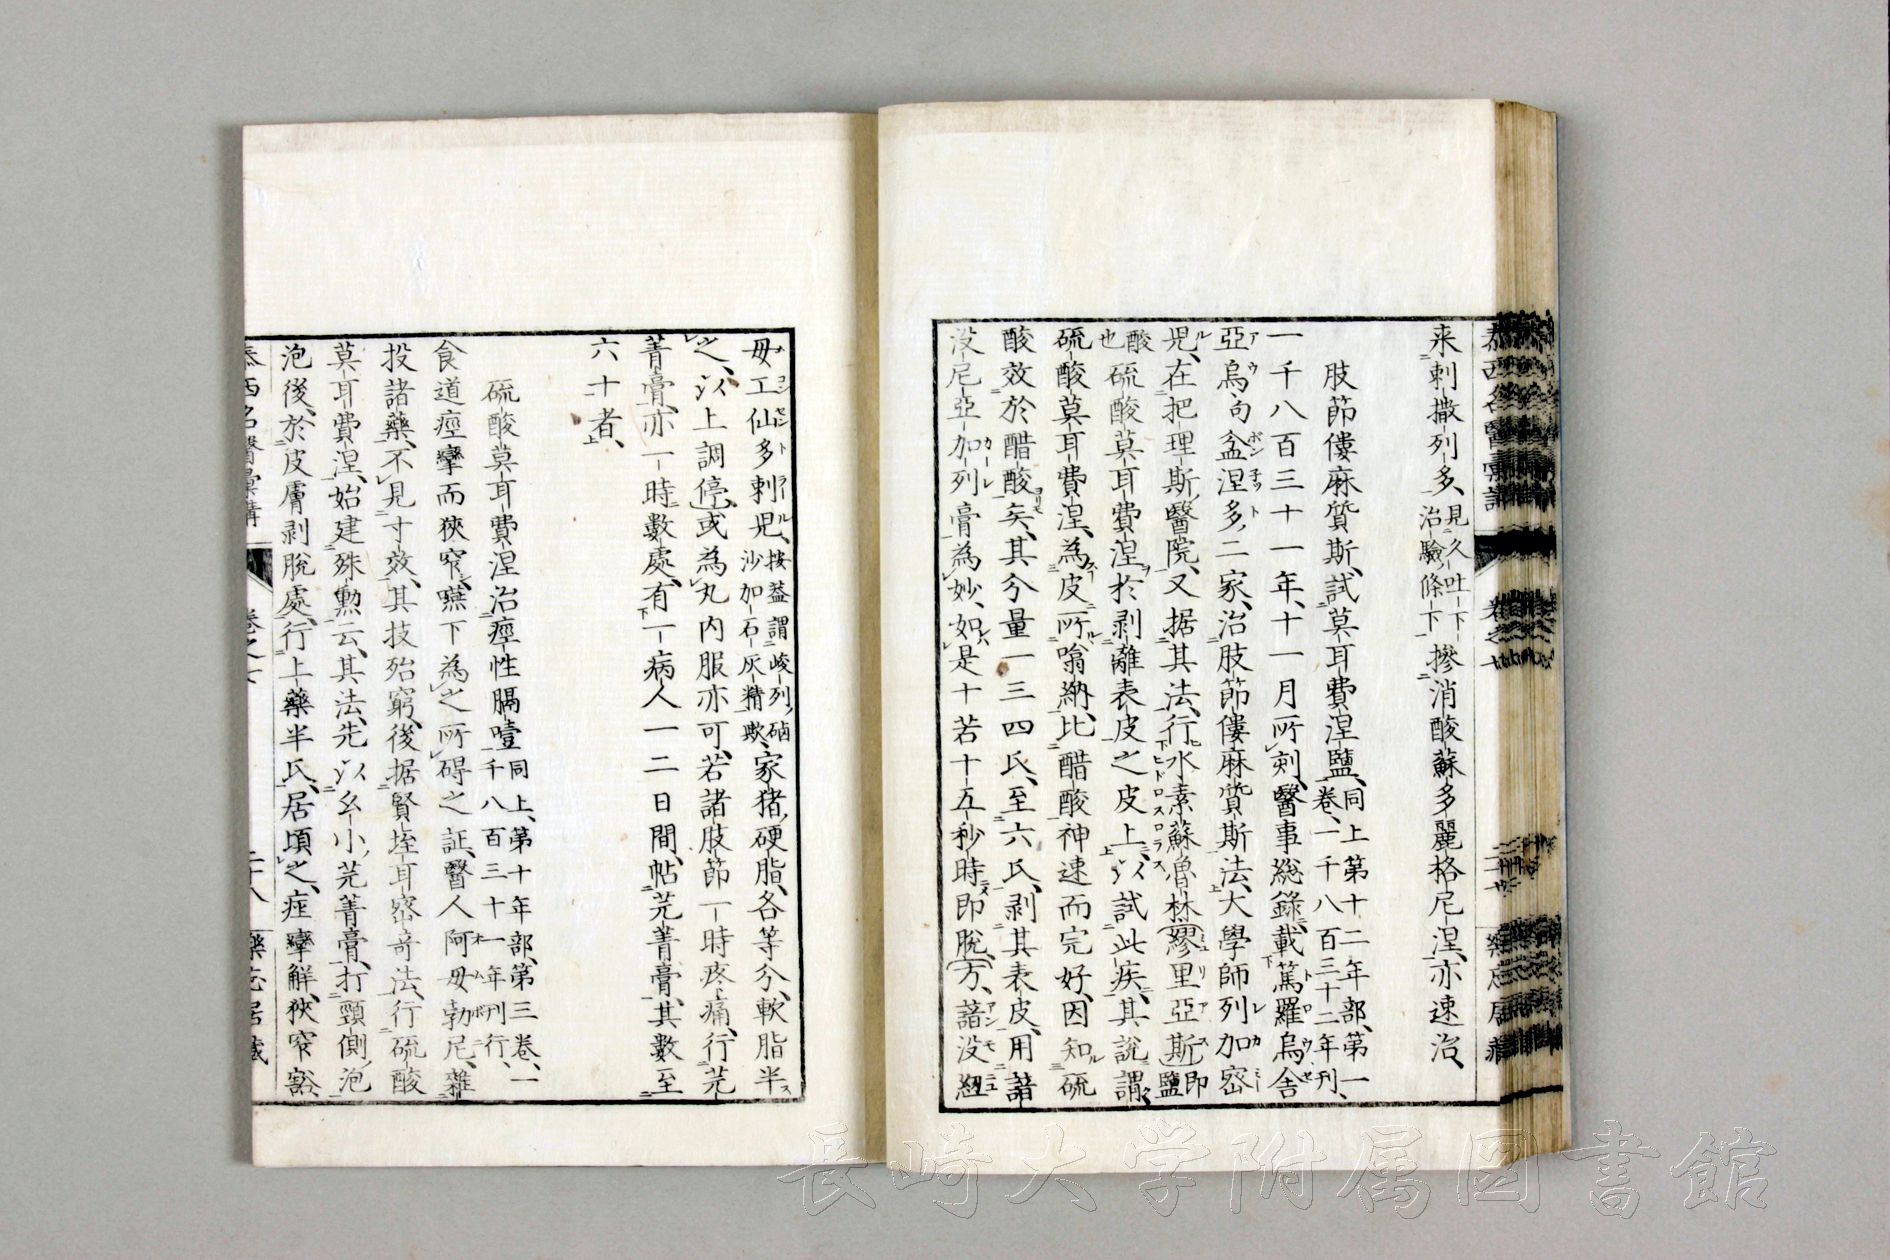 来刺撒列多、見久吐下治驗條下、摻消酸蘇多麗格尼涅、亦速治、
肢節僂麻質斯、試莫耳費涅鹽、同上第十二年部、第一卷、一千八百三十二年刊、
一千八百三十一年、十一月所刻、醫事總錄、載篤羅烏舍
亞烏、句盆涅多、二家、治肢節僂麻質斯法、大學師列加密
児、在把理斯醫院、又据其法、行水素蘇魯林繆里亞斯鹽即
酸也硫酸莫耳費涅於剥離表皮之皮上、以試此疾、其說謂、
硫酸莫耳費涅、為皮所噏納、比醋酸神速而完好、因知硫
酸效於醋酸矣、其分量一三四氏、至六氏、剥其表皮、用諳
没尼亞加列膏為妙、如是十若十五秒時即脫、方、諳没紐
毋工仙多刺児、按蓋謂峻列硇沙加石灰精欤、家猪硬脂、各等分、軟脂半
之、以上調停、或為丸内服亦可、若諸肢節一時疼痛、行芫
菁膏、亦一時數處、有一病人一二日間、帖芫菁膏、其數至
六十者、
硫酸莫耳費涅治痙性膈噎同上、第十年部、第三卷、一千八百三十一年刊行、
食道痙攣而狹窄、嚥下為之所碍之証、醫人阿毋勃尼、雜
投諸藥、不見寸效、其技殆窮、後据賢垤耳密奇法、行硫酸
莫耳費涅、始建殊勲云、其法、先以幺小芫菁膏、打頸側、泡
泡後、於皮膚剥脫處、行上藥半氏、居頃之、痙攣解、狹窄豁
泰西名醫彙講
卷之
二十八
藥
長崎大学附属図書館